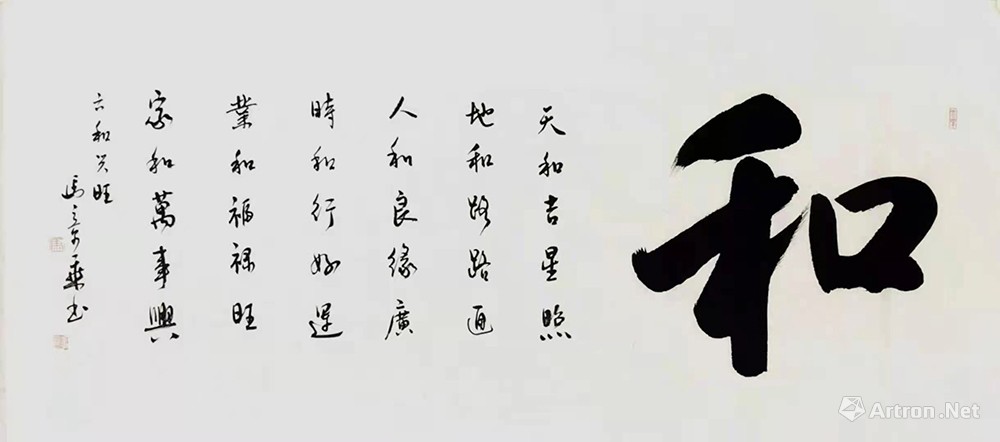 和
天和吉星照
地和路路通
人和良緣廣
時和行好運
業和福祿旺
家和萬事興
六和兴旺
馬景泉书
Artron.Net